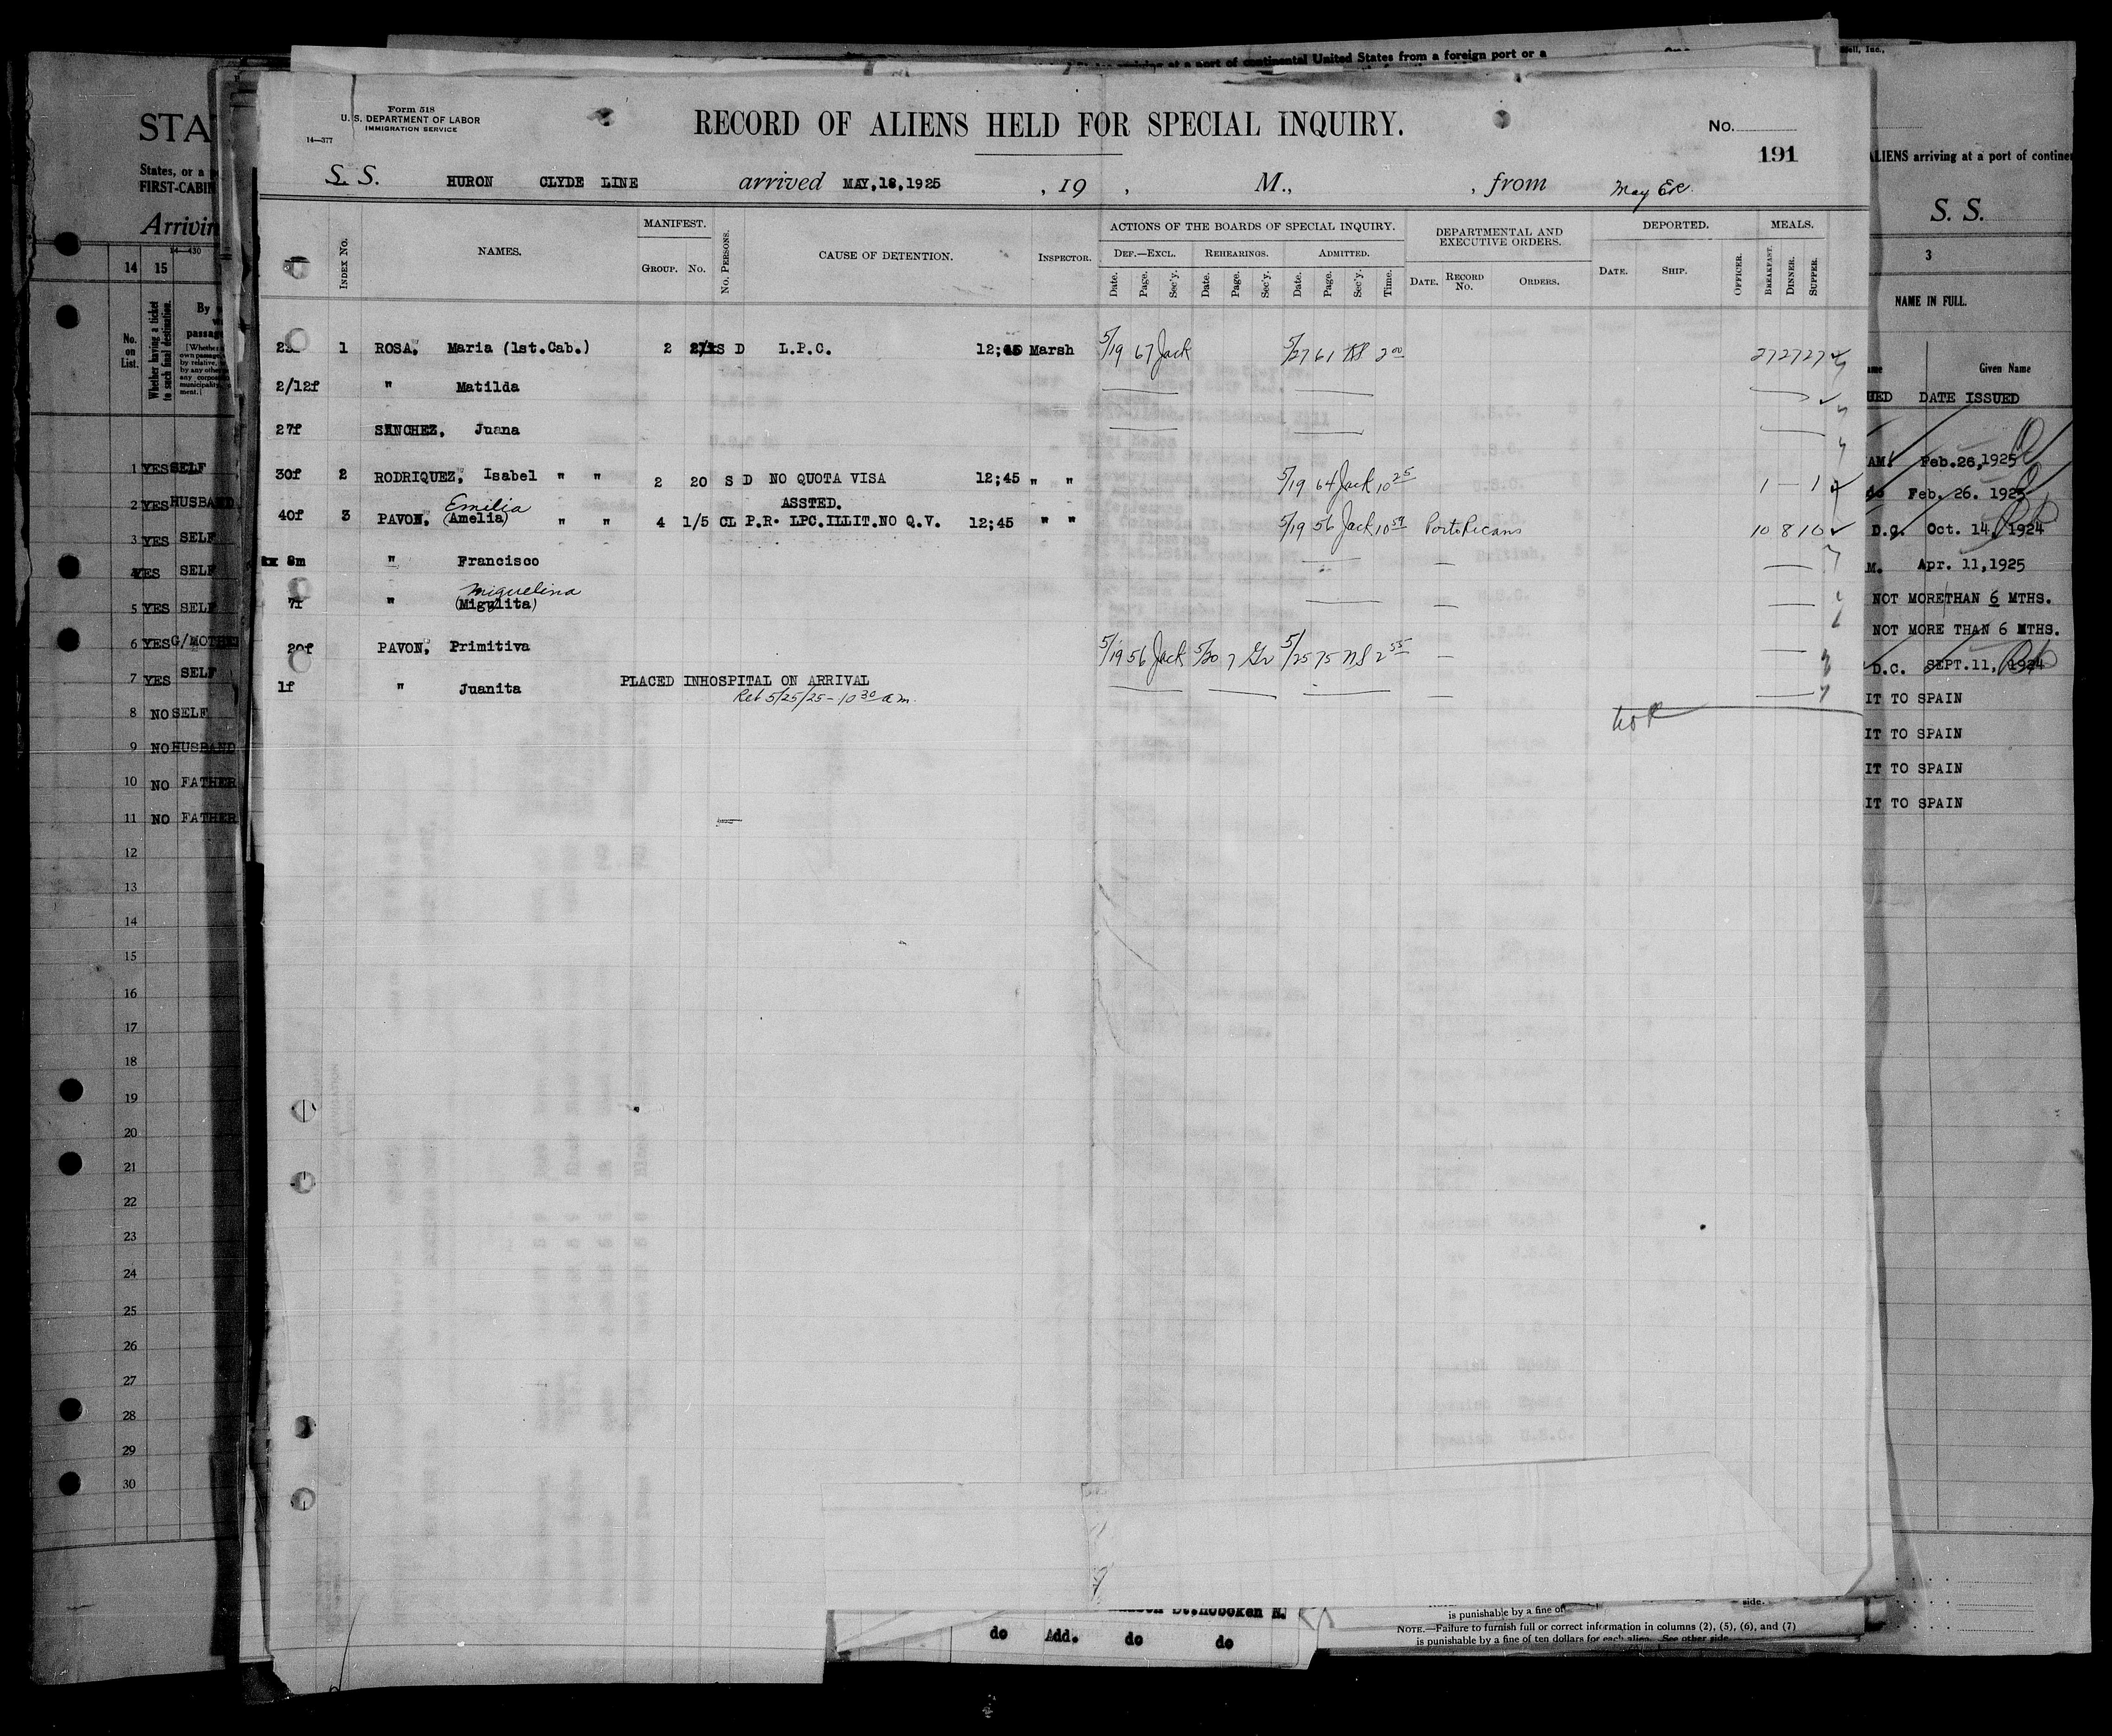 One
ell, Inc.,
at a port of continental United States from a foreign port or a
Form 518
U. S. DEPARTMENT OF LABOR
IMMIGRATION SERVICE
14—377
RECORD OF ALIENS HELD FOR SPECIAL INQUIRY.
No.
191
S. S. HURON CLYDE LINE arrived MAY,18,1925 , 19 , M., , from
INDEX No. NAMES. MANIFEST. GROUP. No. No. PERSONS. CAUSE OF DETENTION. INSPECTOR.
ACTIONS OF THE BOARDS OF SPECIAL INQUIRY.
DEF.—EXCL. REHEARINGS. ADMITTED.
Date. Page. Sec'y. Date. Page. Sec'y. Date. Page. Sec'y. Time.
DEPARTMENTAL AND EXECUTIVE ORDERS.
DATE. RECORD No. ORDERS.
DEPORTED.
DATE. SHIP.
OFFICER.
MEALS.
BREAKFAST. DINNER. SUPPER.
1 ROSA, Maria (1st.Cab.) 2 S D L.P.C. Marsh 5/19 67 Jack 5/27 61 2 00 27 27 27
2/12f " Matilda
27f SANCHEZ, Juana
30f 2 RODRIQUEZ, Isabel " " 2 20 S D NO QUOTA VISA 12;45 " " 5/19 64 Jack 10 25 1 — 1
Emilia
ASSTED.
40f 3 PAVON, (Amelia) " " 4 1/5 CL P.R. LPC.ILLIT.NO Q.V. 12;45 " " 5/19 56 Jack 10 59 Porto Ricans 10 8 10
8m " Francisco
Miguelina
7f " (Migulita)
20f PAVON, Primitiva 5/19 56 Jack 5/20 7 Gr 5/25 75 NS 2 55
1f " Juanita PLACED INHOSPITAL ON ARRIVAL
5/25/25 - 10 30 a.m.
STA
States, or a
FIRST-CABIN
Arrivin
14—430
14 15
No. on List.
Whether having a ticket to such final destination.
By
passage
1 YES SELF
2 YES HUSBAND
3 YES SELF
YES SELF
5 YES SELF
6 YES G/MOTHER
7 YES SELF
8 NO SELF
9 NO HUSBAND
10 NO FATHER
11 NO FATHER
12
13
14
15
16
17
18
19
20
21
22
23
24
25
26
27
28
29
30
ALIENS arriving at a port of contine
S. S.
3
NAME IN FULL.
Given Name
DATE ISSUED
AM. Feb.26,1925
Feb. 26. 1925
D.C. Oct. 14, 1924
M. Apr. 11,1925
NOT MORETHAN 6 MTHS.
NOT MORE THAN 6 MTHS.
D.C. SEPT.11, 1924
IT TO SPAIN
IT TO SPAIN
IT TO SPAIN
IT TO SPAIN
St,Hoboken N.
do Add. do do
side.
is punishable by a fine of
NOTE.—Failure to furnish full or correct information in columns (2), (5), (6), and (7)
is punishable by a fine of ten dollars for each alien. See other side.